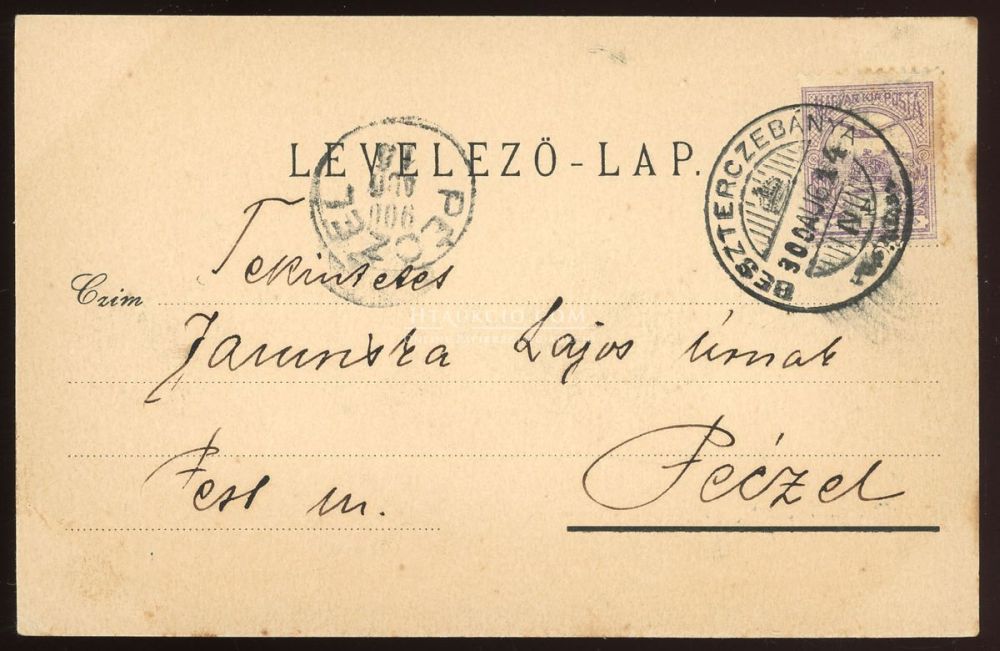 MAGYAR KIR POSTA
BESZTERCZEBÁNYA
AUG 14
LEVELEZŐ-LAP.
PÉCZEL
900
AUG
Tekintetes
Czim
Lajos úrnak
HTAUKCIO.COM
Pest m.
Péczel